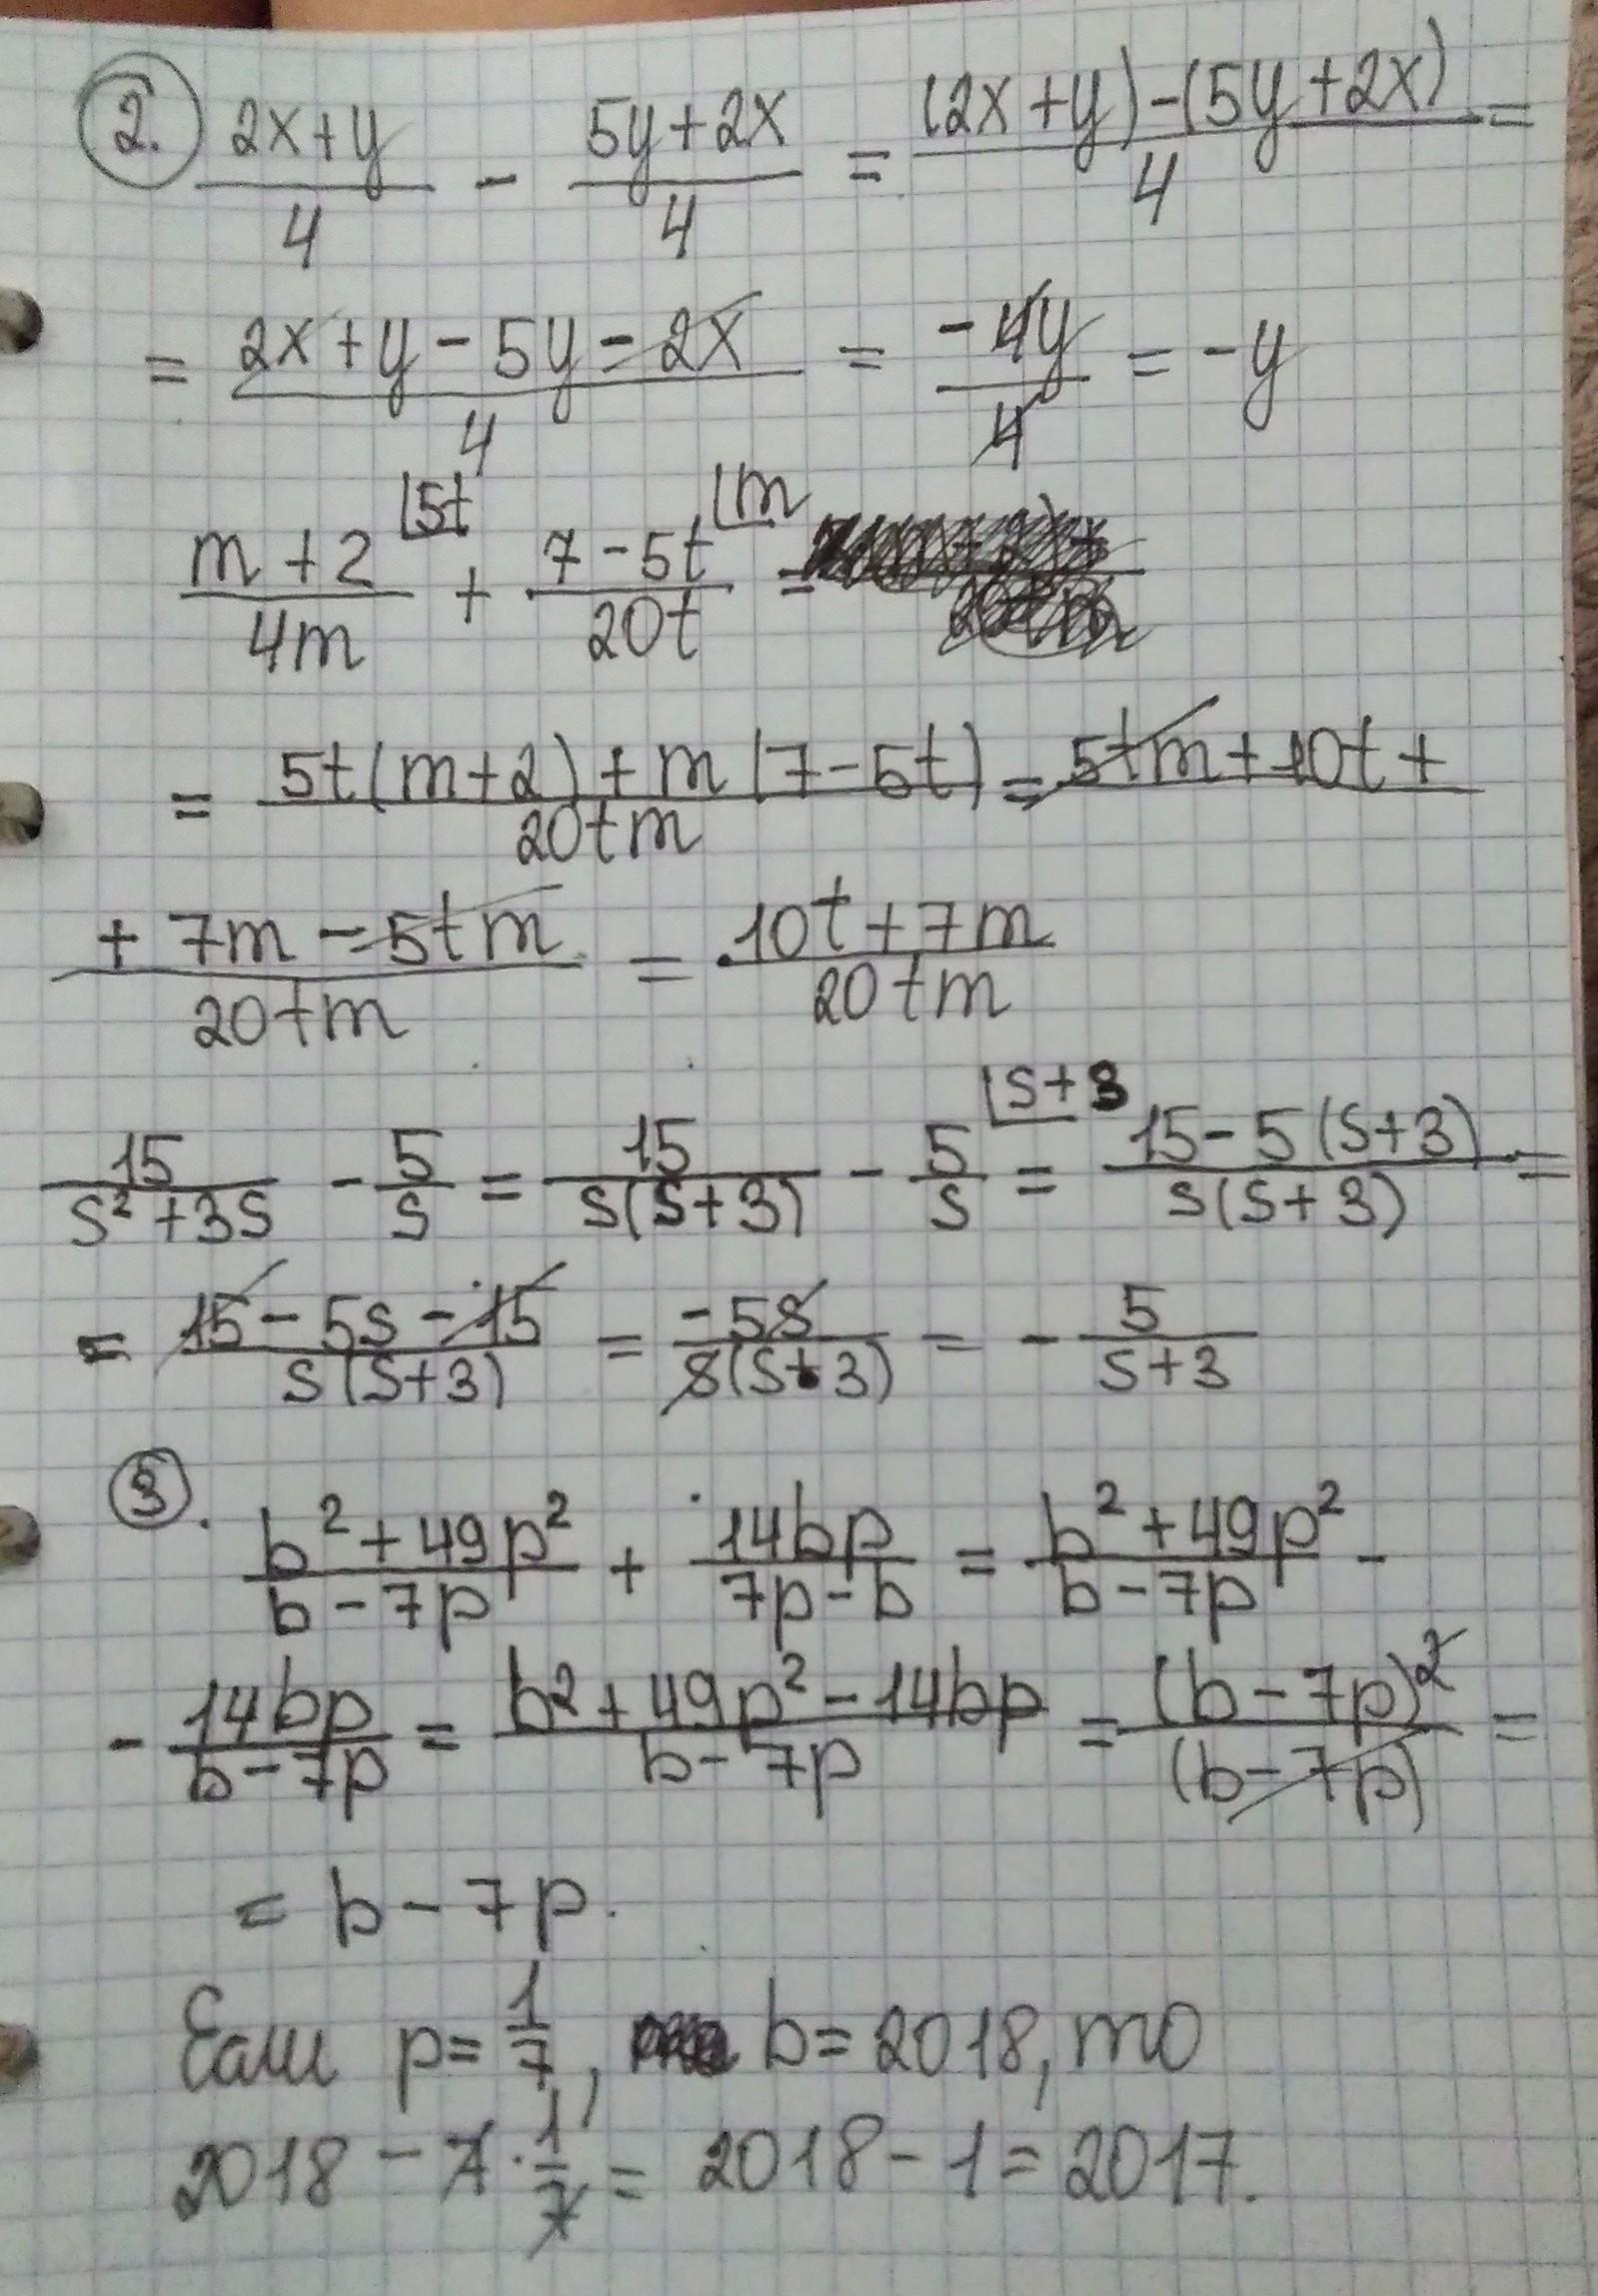 2. (2x+y)/4 - (5y+2x)/4 = ((2x+y)-(5y+2x))/4 =
= (2x+y-5y-2x)/4 = -4y/4 = -y
(m+2)/4m ⌊5t + (7-5t)/20t ⌊m =
= (5t(m+2)+m(7-5t))/20tm = 5tm+10t+
+7m-5tm/20tm = (10t+7m)/20tm
15/(s²+3s) - 5/s = 15/(s(s+3)) - 5/s ⌊s+3 = (15-5(s+3))/(s(s+3)) =
= (15-5s-15)/(s(s+3)) = -5s/(s(s+3)) = - 5/(s+3)
3. (b²+49p²)/(b-7p) + 14bp/(7p-b) = (b²+49p²)/(b-7p) -
- 14bp/(b-7p) = (b²+49p²-14bp)/(b-7p) = (b-7p)²/(b-7p) =
= b-7p.
Если p=1/7, b=2018, то
2018 - 7·1/7 = 2018-1=2017.